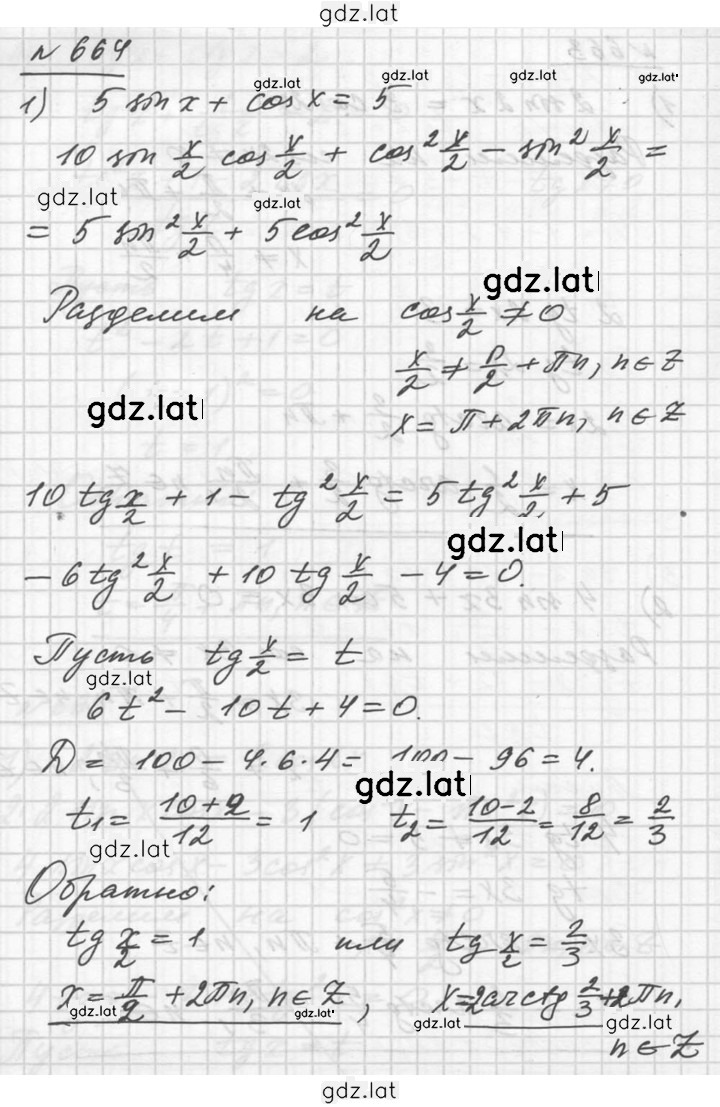 gdz.lat
№ 664
1) 5 sin x + cos x = 5
gdz.lat gdz.lat gdz.lat gdz.lat
10 sin x/2 cos x/2 + cos² x/2 − sin² x/2 =
gdz.lat gdz.lat
= 5 sin² x/2 + 5 cos² x/2
gdz.lat
Разделим на cos x/2 ≠ 0
x/2 ≠ π/2 + πn, n ∈ Z
gdz.lat
x = π + 2πn, n ∈ Z
10 tg x/2 + 1 − tg² x/2 = 5 tg² x/2 + 5
gdz.lat
− 6 tg² x/2 + 10 tg x/2 − 4 = 0.
Пусть tg x/2 = t
gdz.lat
6t² − 10t + 4 = 0.
D = 100 − 4·6·4 = 100 − 96 = 4.
gdz.lat
t₁ = (10+2)/12 = 1 t₂ = (10−2)/12 = 8/12 = 2/3
gdz.lat
Обратно:
tg x/2 = 1 или tg x/2 = 2/3
x = π/2 + 2πn, n ∈ Z, x = 2arctg 2/3 + 2πn,
gdz.lat gdz.lat gdz.lat gdz.lat
n ∈ Z
gdz.lat